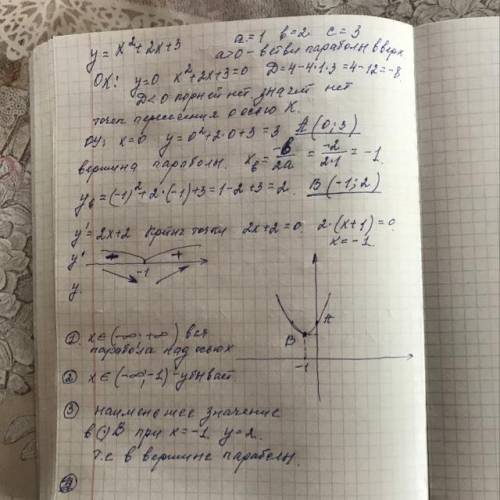 y = x²+2x+3 a=1 в=2 c=3
a>0 - ветви параболы вверх
OX: y=0 x²+2x+3=0 D=4-4·1·3=4-12=-8
D<0 корней нет, значит нет
точек пересечения с осью X.
OY: x=0 y=0²+2·0+3=3 A(0;3)
вершина параболы. xв = -в/2a = -2/2·1 = -1.
yв=(-1)²+2·(-1)+3=1-2+3=2. B(-1;2)
y'=2x+2 Крит. точки 2x+2=0 2·(x+1)=0
x=-1
y' + -1 +
y
A
B
-1
① x∈(-∞;+∞) вся
парабола над осью x
② x∈(-∞;-1) - убывает
③ наименьшее значение
в (·) B при x=-1 y=2.
т.е в вершине параболы.